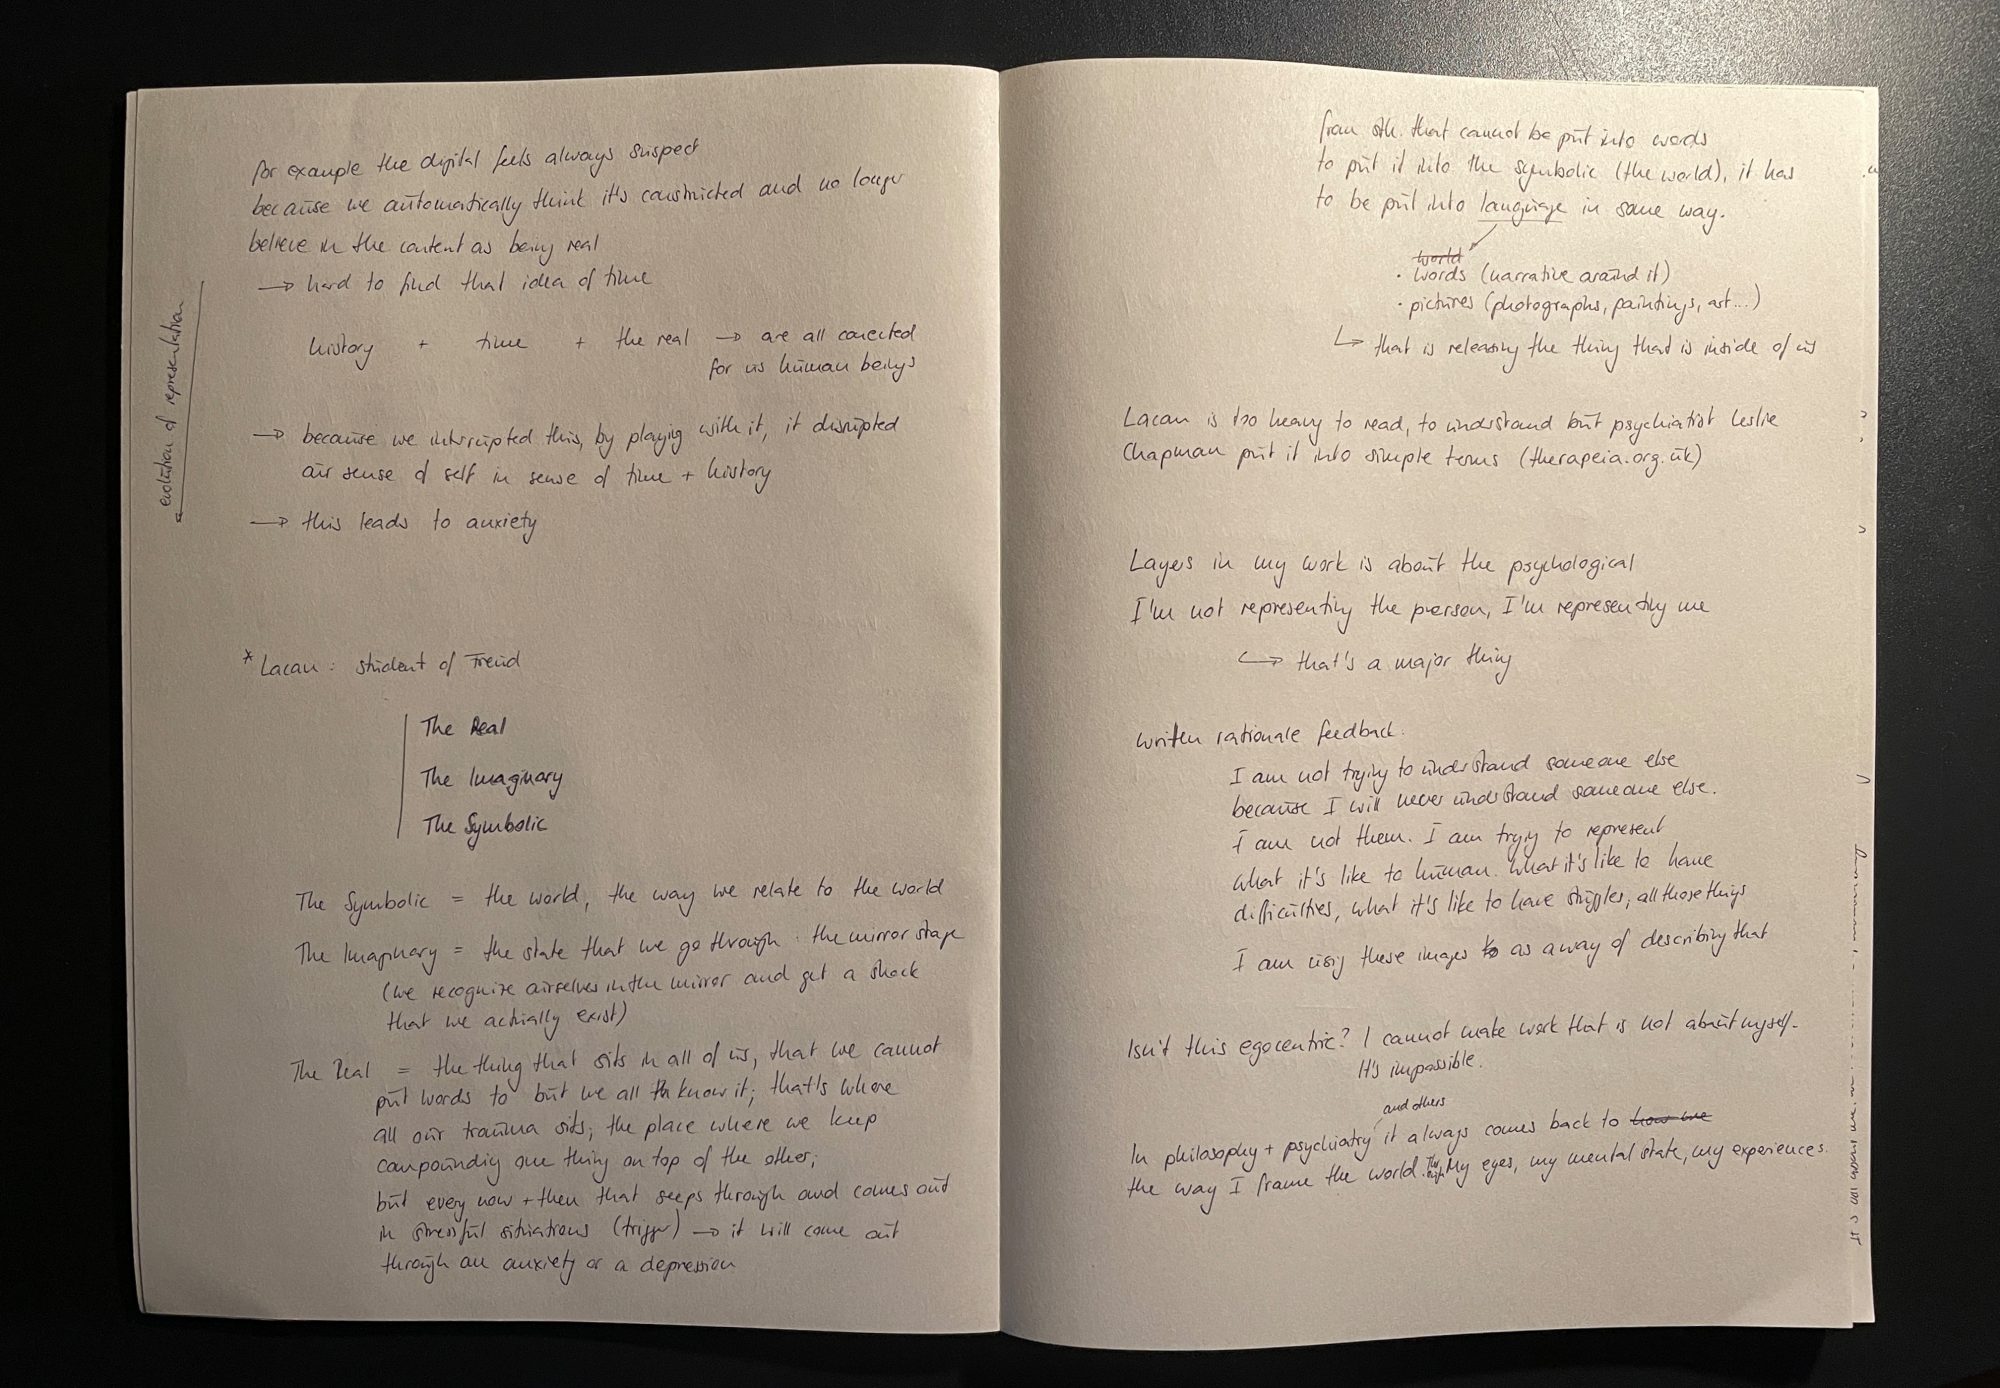 for example the digital feels always suspect
because we automatically think it's constricted and no longer
believe in the content as being real
→ hard to find that idea of time
evolution of representation
history + time + the real → are all conected
for us human beings
→ because we interrupted this, by playing with it, it disrupted
our sense of self in sense of time + history
→ this leads to anxiety
*Lacan: student of Freud
The Real
The Imaginary
The Symbolic
The Symbolic = the world, the way we relate to the world
The Imaginary = the state that we go through: the mirror stage
(we recognize ourselves in the mirror and get a shock
that we actually exist)
The Real = the thing that sits in all of us, that we cannot
put words to but we all th know it; that's where
all our trauma sits; the place where we keep
compoundig one thing on top of the other;
but every now + then that seeps through and comes out
in stressful situations (trigger) → it will come out
through an anxiety or a depression
from sth. that cannot be put into words
to put it into the symbolic (the world), it has
to be put into language in some way.
world
· words (narrative around it)
· pictures (photographs, paintings, art...)
↳ that is releasing the thing that is inside of us
Lacan is too heavy to read, to understand but psychiatrist Leslie
Chapman put it into simple terms (therapeia.org.uk)
Layers in my work is about the psychological
I'm not representing the person, I'm representing me
↳ that's a major thing
Written rationale feedback:
I am not trying to understand someone else
because I will never understand someone else.
I am not them. I am trying to represent
what it's like to human. What it's like to have
difficulties, what it's like to have struggles, all those things
I am using these images to as a way of describing that
Isn't this egocentric? I cannot make work that is not about myself.
It's impossible.
and others
In philosophy + psychiatry it always comes back to how we
the way I frame the world. My eyes, my mental state, my experiences.